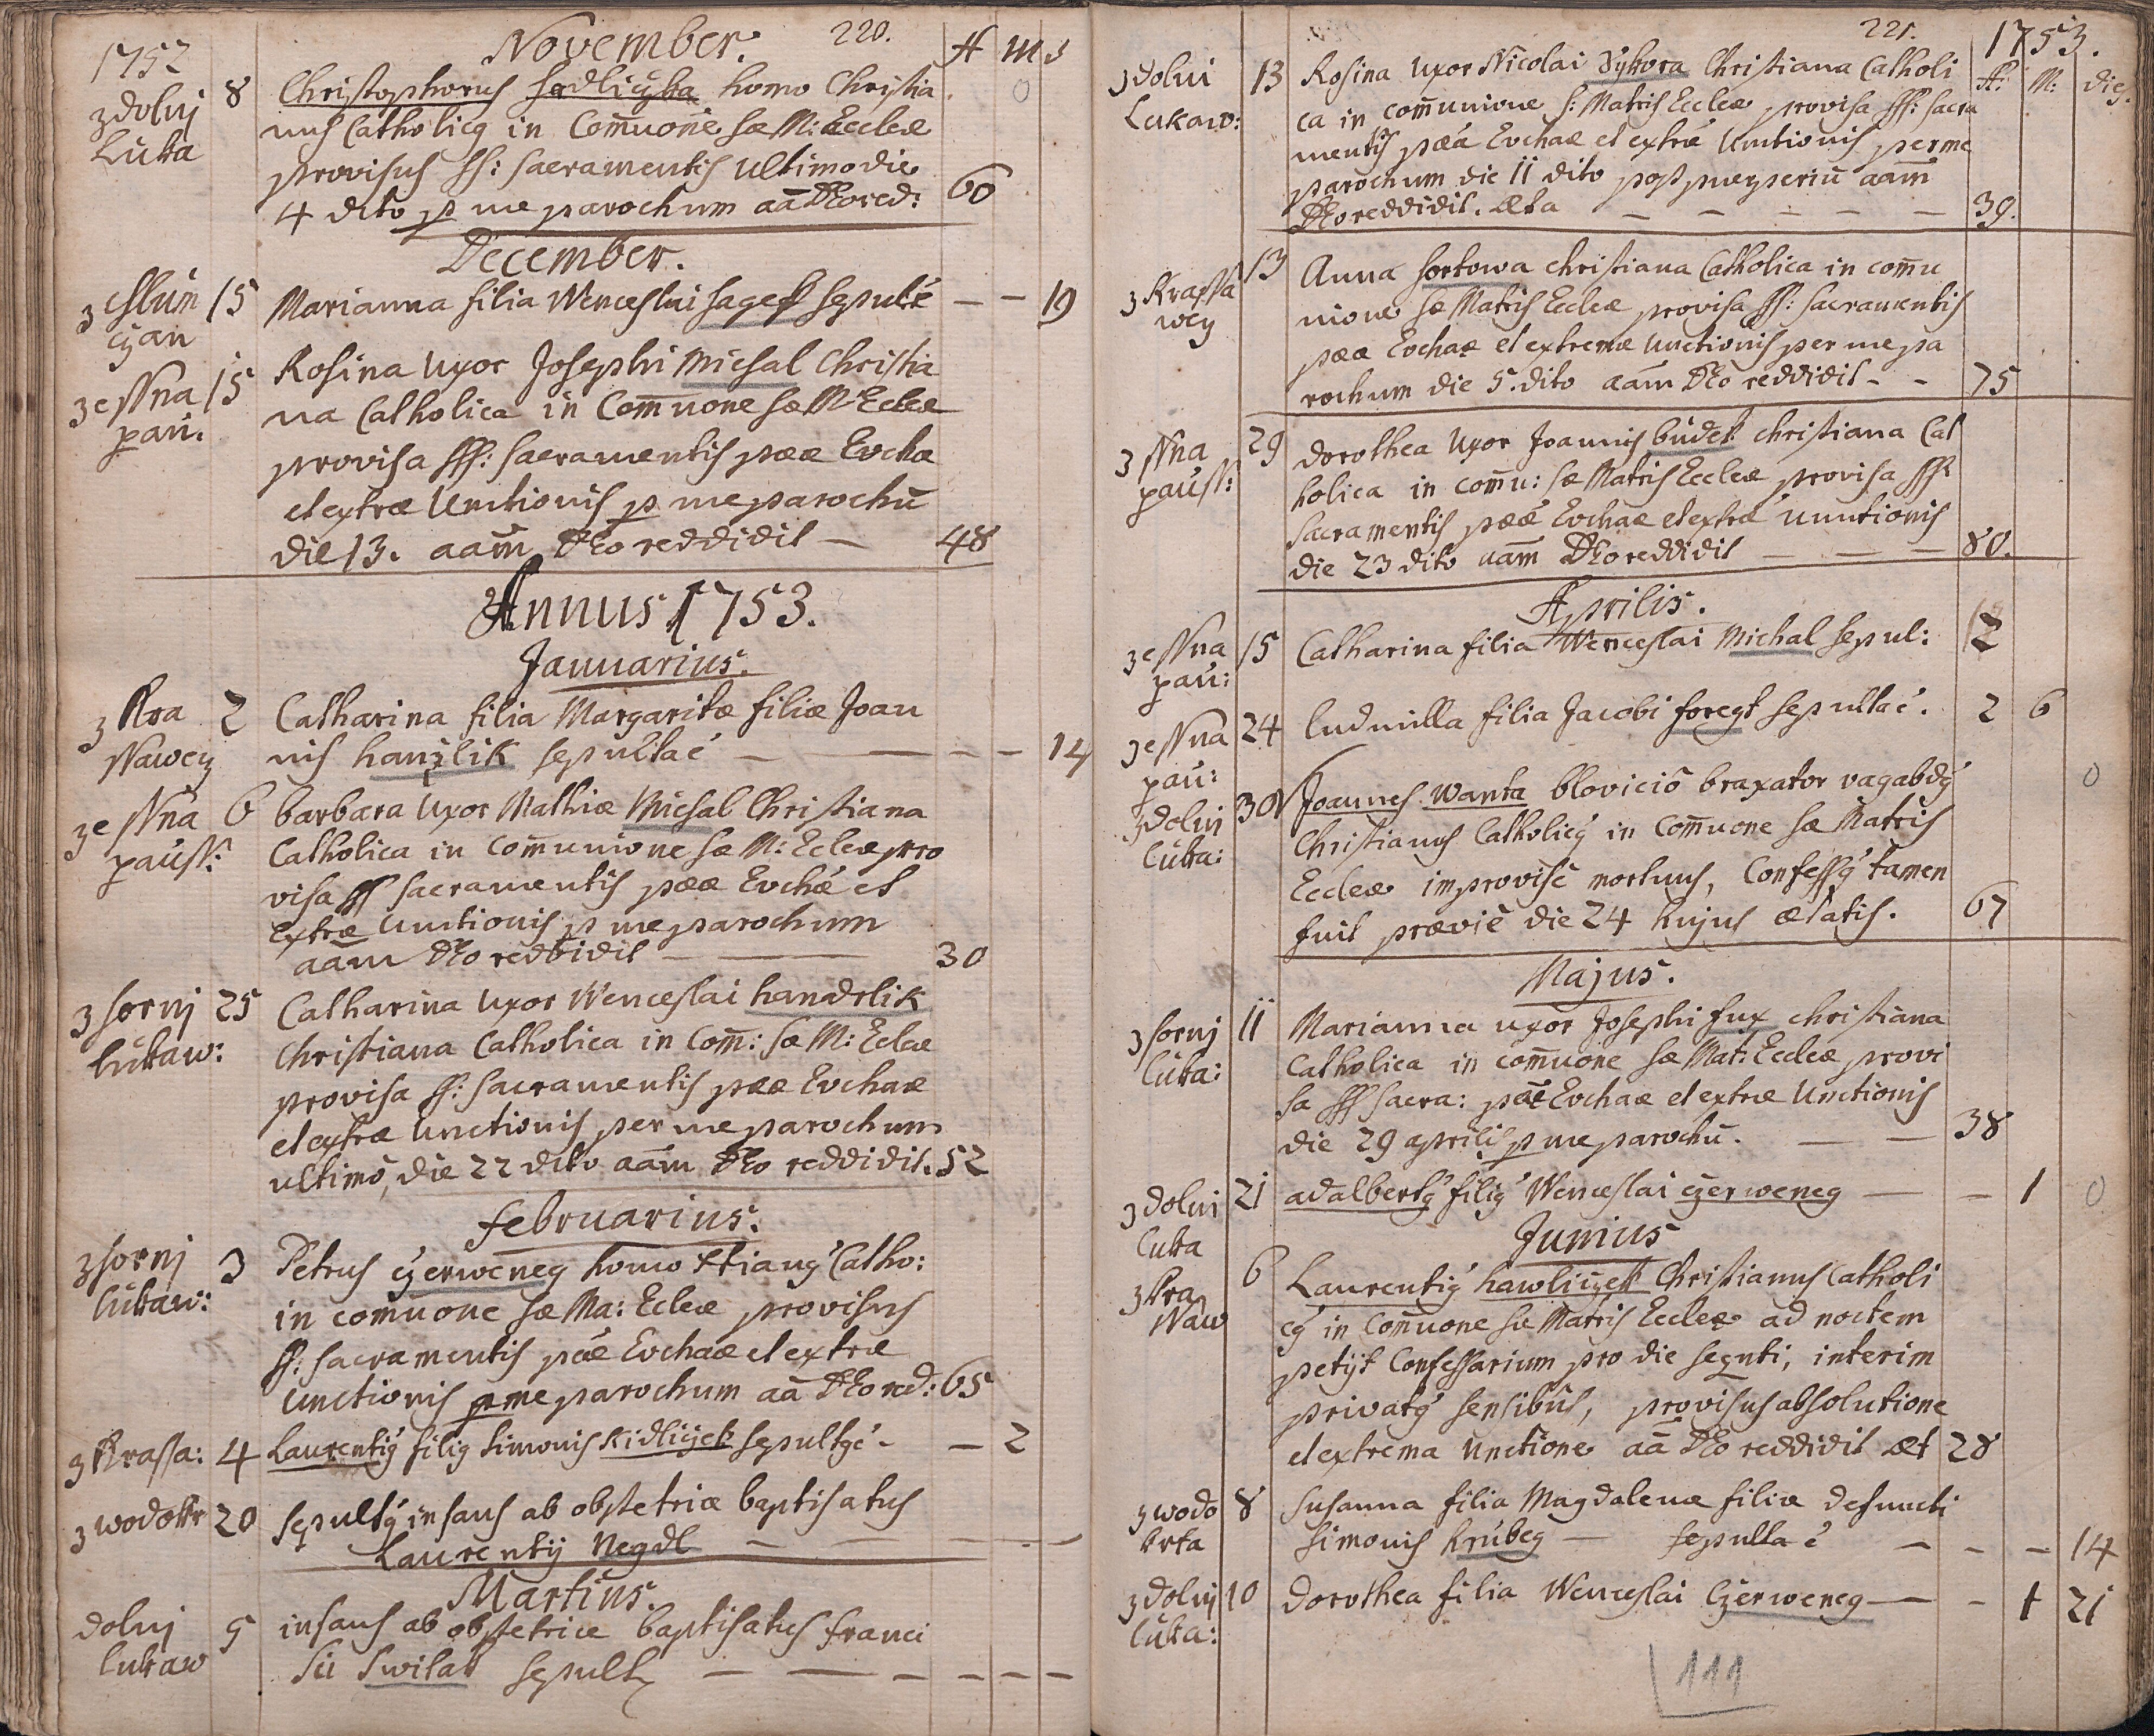 220.
1752
November.
A M D
z dolnj
Luka
8
Christophorus sedliczka homo Christia
nus Catholicq in Com̄uone sæ M: Eccleæ
provisus ss: sacramentis ultimo die
4 dito p me parochum aā DEo red:
60
0
December.
z Slum
czan
15
Marianna filia Wenceslai sages sepult e
— — 19
ze Sna
pau.
15
Rosina Uxor Josephi Michal Christia
na Catholica in Com̄uone sæ M Eccleæ
provisa sss: sacramentis pææ Evchæ
et extræ Unctionis p me parochū
die 13. aām DEo reddidit —
48
Annus 1753.
Januarius.
z Kra
ssawcz
2
Catharina filia Margaritæ filiæ Joan
nis hanzlik sepulta é — — — —
14
ze Sna
pauss:
6
barbara Uxor Mathiæ Michal Christiana
Catholica in Communione sæ M: Eccleæ pro
visa ss sacramentis pææ Evchæ et
extræ Unctionis p me parochum
aām DEo reddidit — —
30
z hornj
lukaw:
25
Catharina Uxor Wenceslai hanadrlik
Christiana Catholica in Com̄: sæ M: Eccleæ
provisa ss: sacramentis pææ Evchaæ
et extræ Unctionis per me parochum
ultimo, die 22 dito aām DEo reddidit.
52
februarius.
z hornj
lukaw:
3
Petrus czerweneg homo Xtianq Catho:
in com̄uone sæ Ma: Eccleæ provisus
ss: sacramentis pææ Evchaæ et extræ
Unctionis p me parochum aā DEo red:
65
z Krassa:
4
Laurentiq filiq Simonis Kidliczek sepultq é —
— 2
z wodokr
20
Sepultq infans ab obstetrice baptisatus
Laurentij Negdl — — — —
Martius.
dolnj
lukaw
5
infans ab obstetrice baptisatus franci
sci Switak sepultq — — — — —
221.
1753.
A: M: dies.
z dolni
Lukaw:
13
Rosina Uxor Nicolai Sykora Christiana Catholi
ca in com̄unione s: Matris Eccleæ provisa ss: sacra
mentis pææ Evchaæ et extræ Unctionis per me
parochum die 11 dito post puerperiū aām
DEo reddidit. Æta — — — — —
39.
z Krassa
wcy
13
Anna hortowa christiana Catholica in com̄u
nione sæ Matris Eccleæ provisa ss: sacramentis
pææ Evchaæ et extremæ Unctionis per me pa
rochum die 5. dito aām DEo reddidit — —
75
z Sna
pauss:
29
dorothea Uxor Joannis budek christiana Cat
holica in com̄u: sæ Matris Eccleæ provisa ss:
sacramentis pææ Evchaæ et extræ Unctionis
die 23 dito aām DEo reddidit — — —
80.
Aprilis.
ze Sna
pau:
15
Catharina filia Wenceslai Michal sepul:
12
ze Sna
pau:
24
ludmilla filia Jacobi foregt sepulta é.
2 6
z dolnj
luka:
30
Joannes Wanta blovicio braxator vagabdq
Christianus Catholicq in Com̄uone sæ Matris
Eccleæ improvise mortuus, Confessq tamen
fuit prævie die 24 hujus ætatis.
67
0
Majus.
z hornj
luka:
11
Marianna uxor Josephi fux christiana
Catholica in com̄uone sæ Mat: Eccleæ provi
sa sss sacra: pææ Evchaæ et extræ Unctionis
die 29 aprilis p me parochū. — —
38
z dolni
luka
21
adalbertq filiq Wenceslai czerweneg —
— 1 0
Junius
z Kra
ssaw
6
Laurentiq hawliczek Christianus Catholi
cq in Com̄uone sæ Matris Eccleæ ad noctem
petijt Confessarium pro die seqnti, interim
privatq sensibus, provisus absolutione
et extrema Unctione aā DEo reddidit Æt
28
z wodo
krta
8
Susanna filia Magdalenæ filiæ defuncti
Simonis Krubeg — sepulta é
— — — 14
z dolnj
luka:
10
dorothea filia Wenceslai Czerweneg —
— 1 21
111